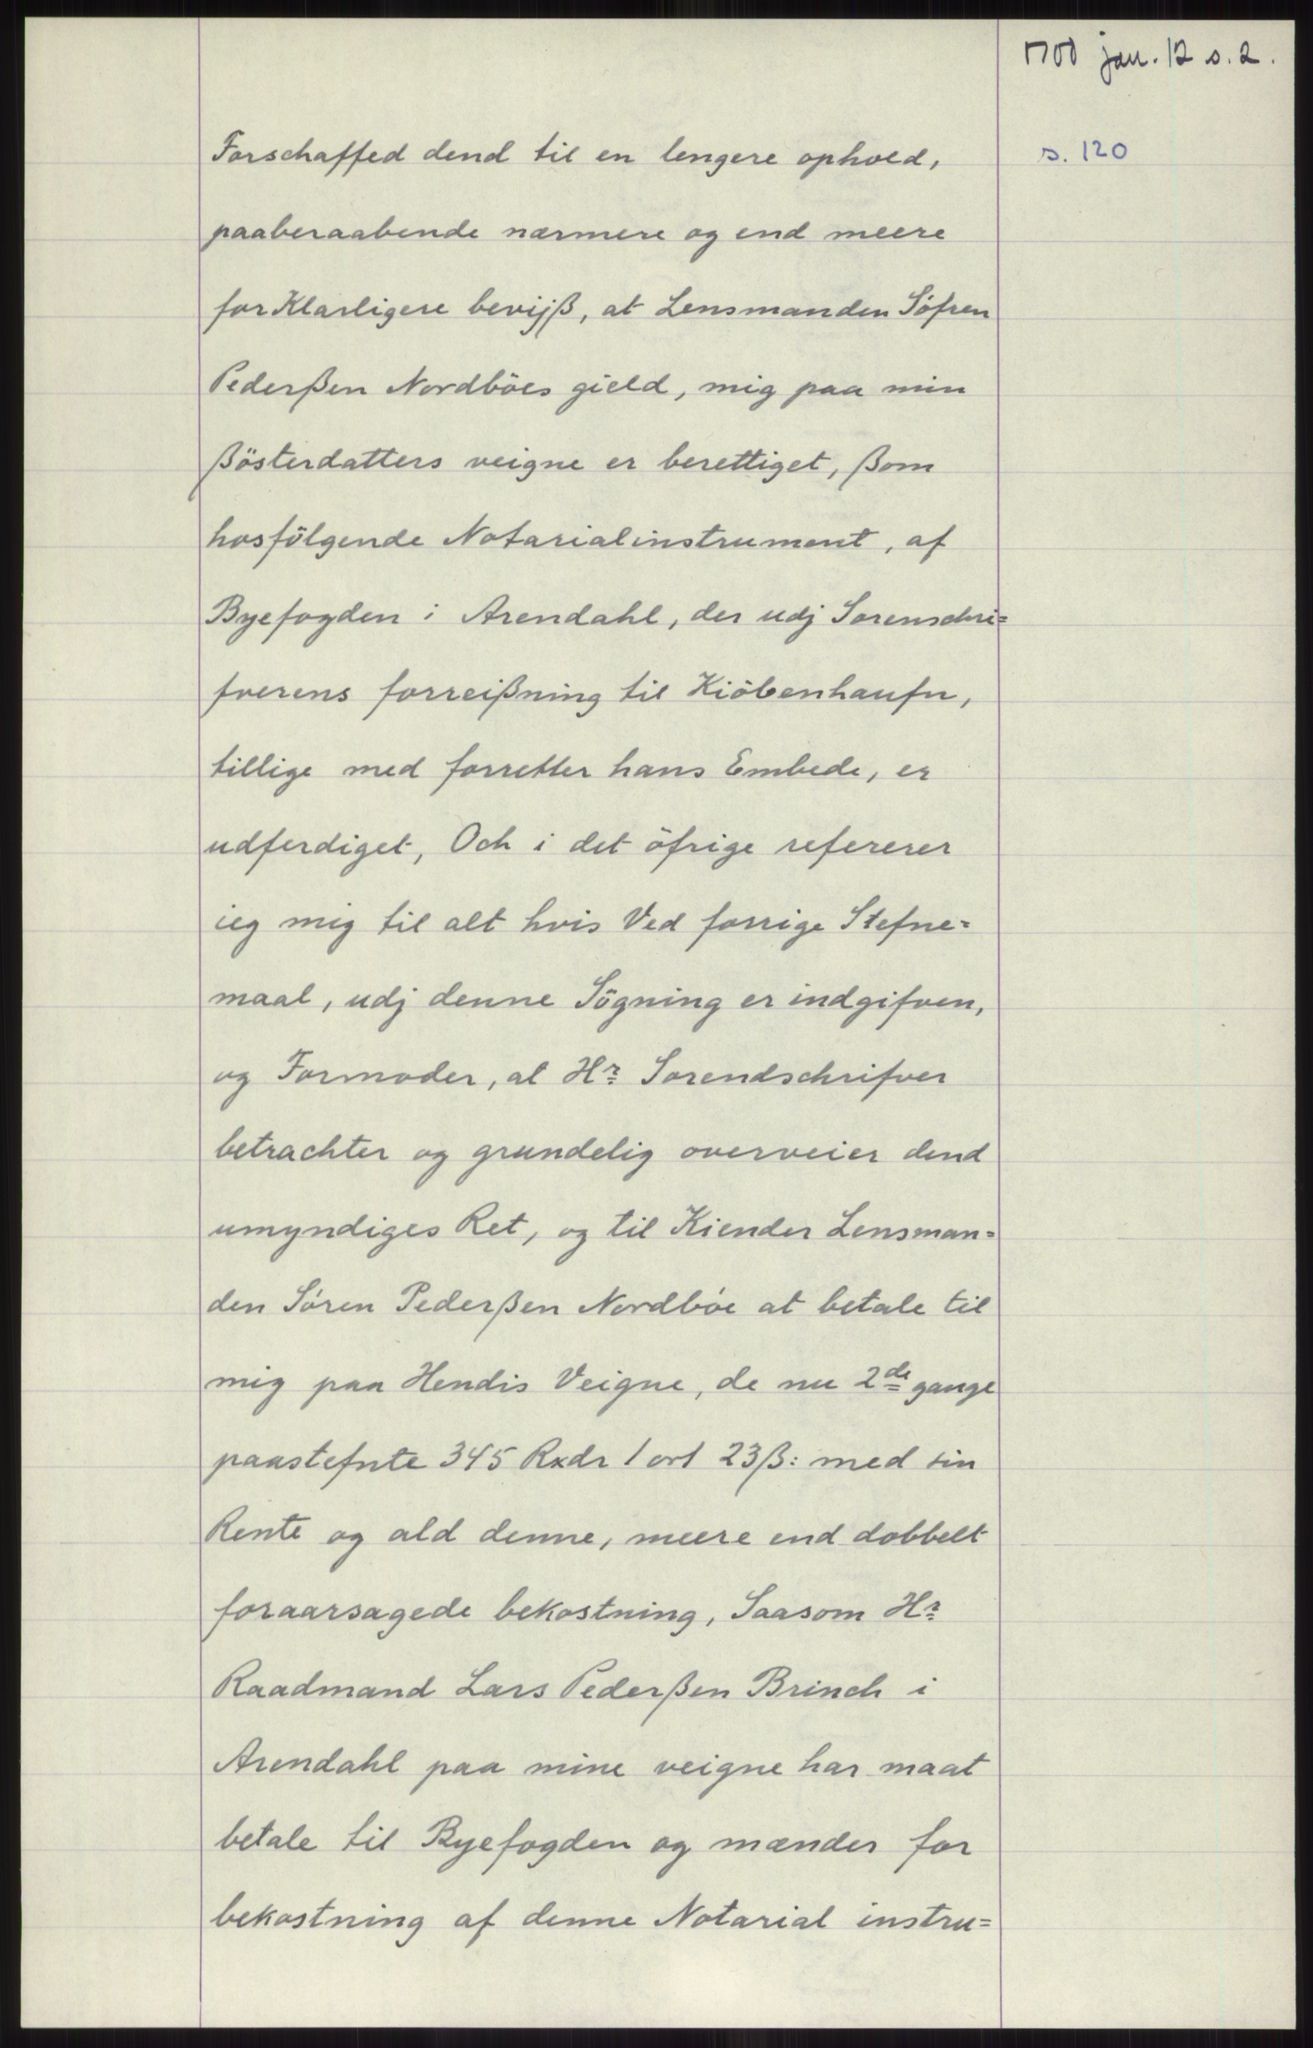 1700 jan. 12 s. 2.
s. 120
Forschaffed dend til en lengere ophold,
paaberaabende nærmere og end meere
for Klarligere bevijß, at Lensmanden Söfren
Pederßen Nordböes gield, mig paa min
ßösterdatters veigne er berettiget, ßom
hosfölgende Notarialinstrument, af
Byefogden i Arendahl, der udj Sorenschri=
fverens forreißning til Kiöbenhaufn,
tillige med forretter hans Embede, er
udferdiget, Och i det öfrige refererer
ieg mig til alt hvis Ved forrige Stefne=
maal, udj denne Sögning er indgifven,
og Formoder, at Hr. Sorendschrifver
betrachter og grundelig overveier dend
umyndiges Ret, og til Kiender Lensman=
den Sören Pederßen Nordböe at betale til
mig paa Hendis Veigne, de nu 2de gange
paastefnte 345 Rxdr 1 ort 23ß: med sin
Rente og ald denne, meere end dobbelt
foraarsagede bekostning, Saasom Hr.
Raadmand Lars Pederßen Brinch i
Arendahl paa mine veigne har maat
betale til Byefogden og mænder for
bekostning af denne Notarial instru=